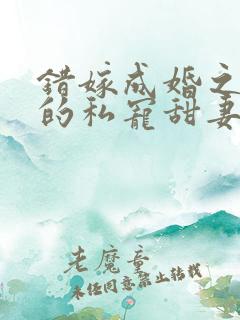 错嫁成婚之
的私宠甜妻
老魔童
未经同意禁止转载